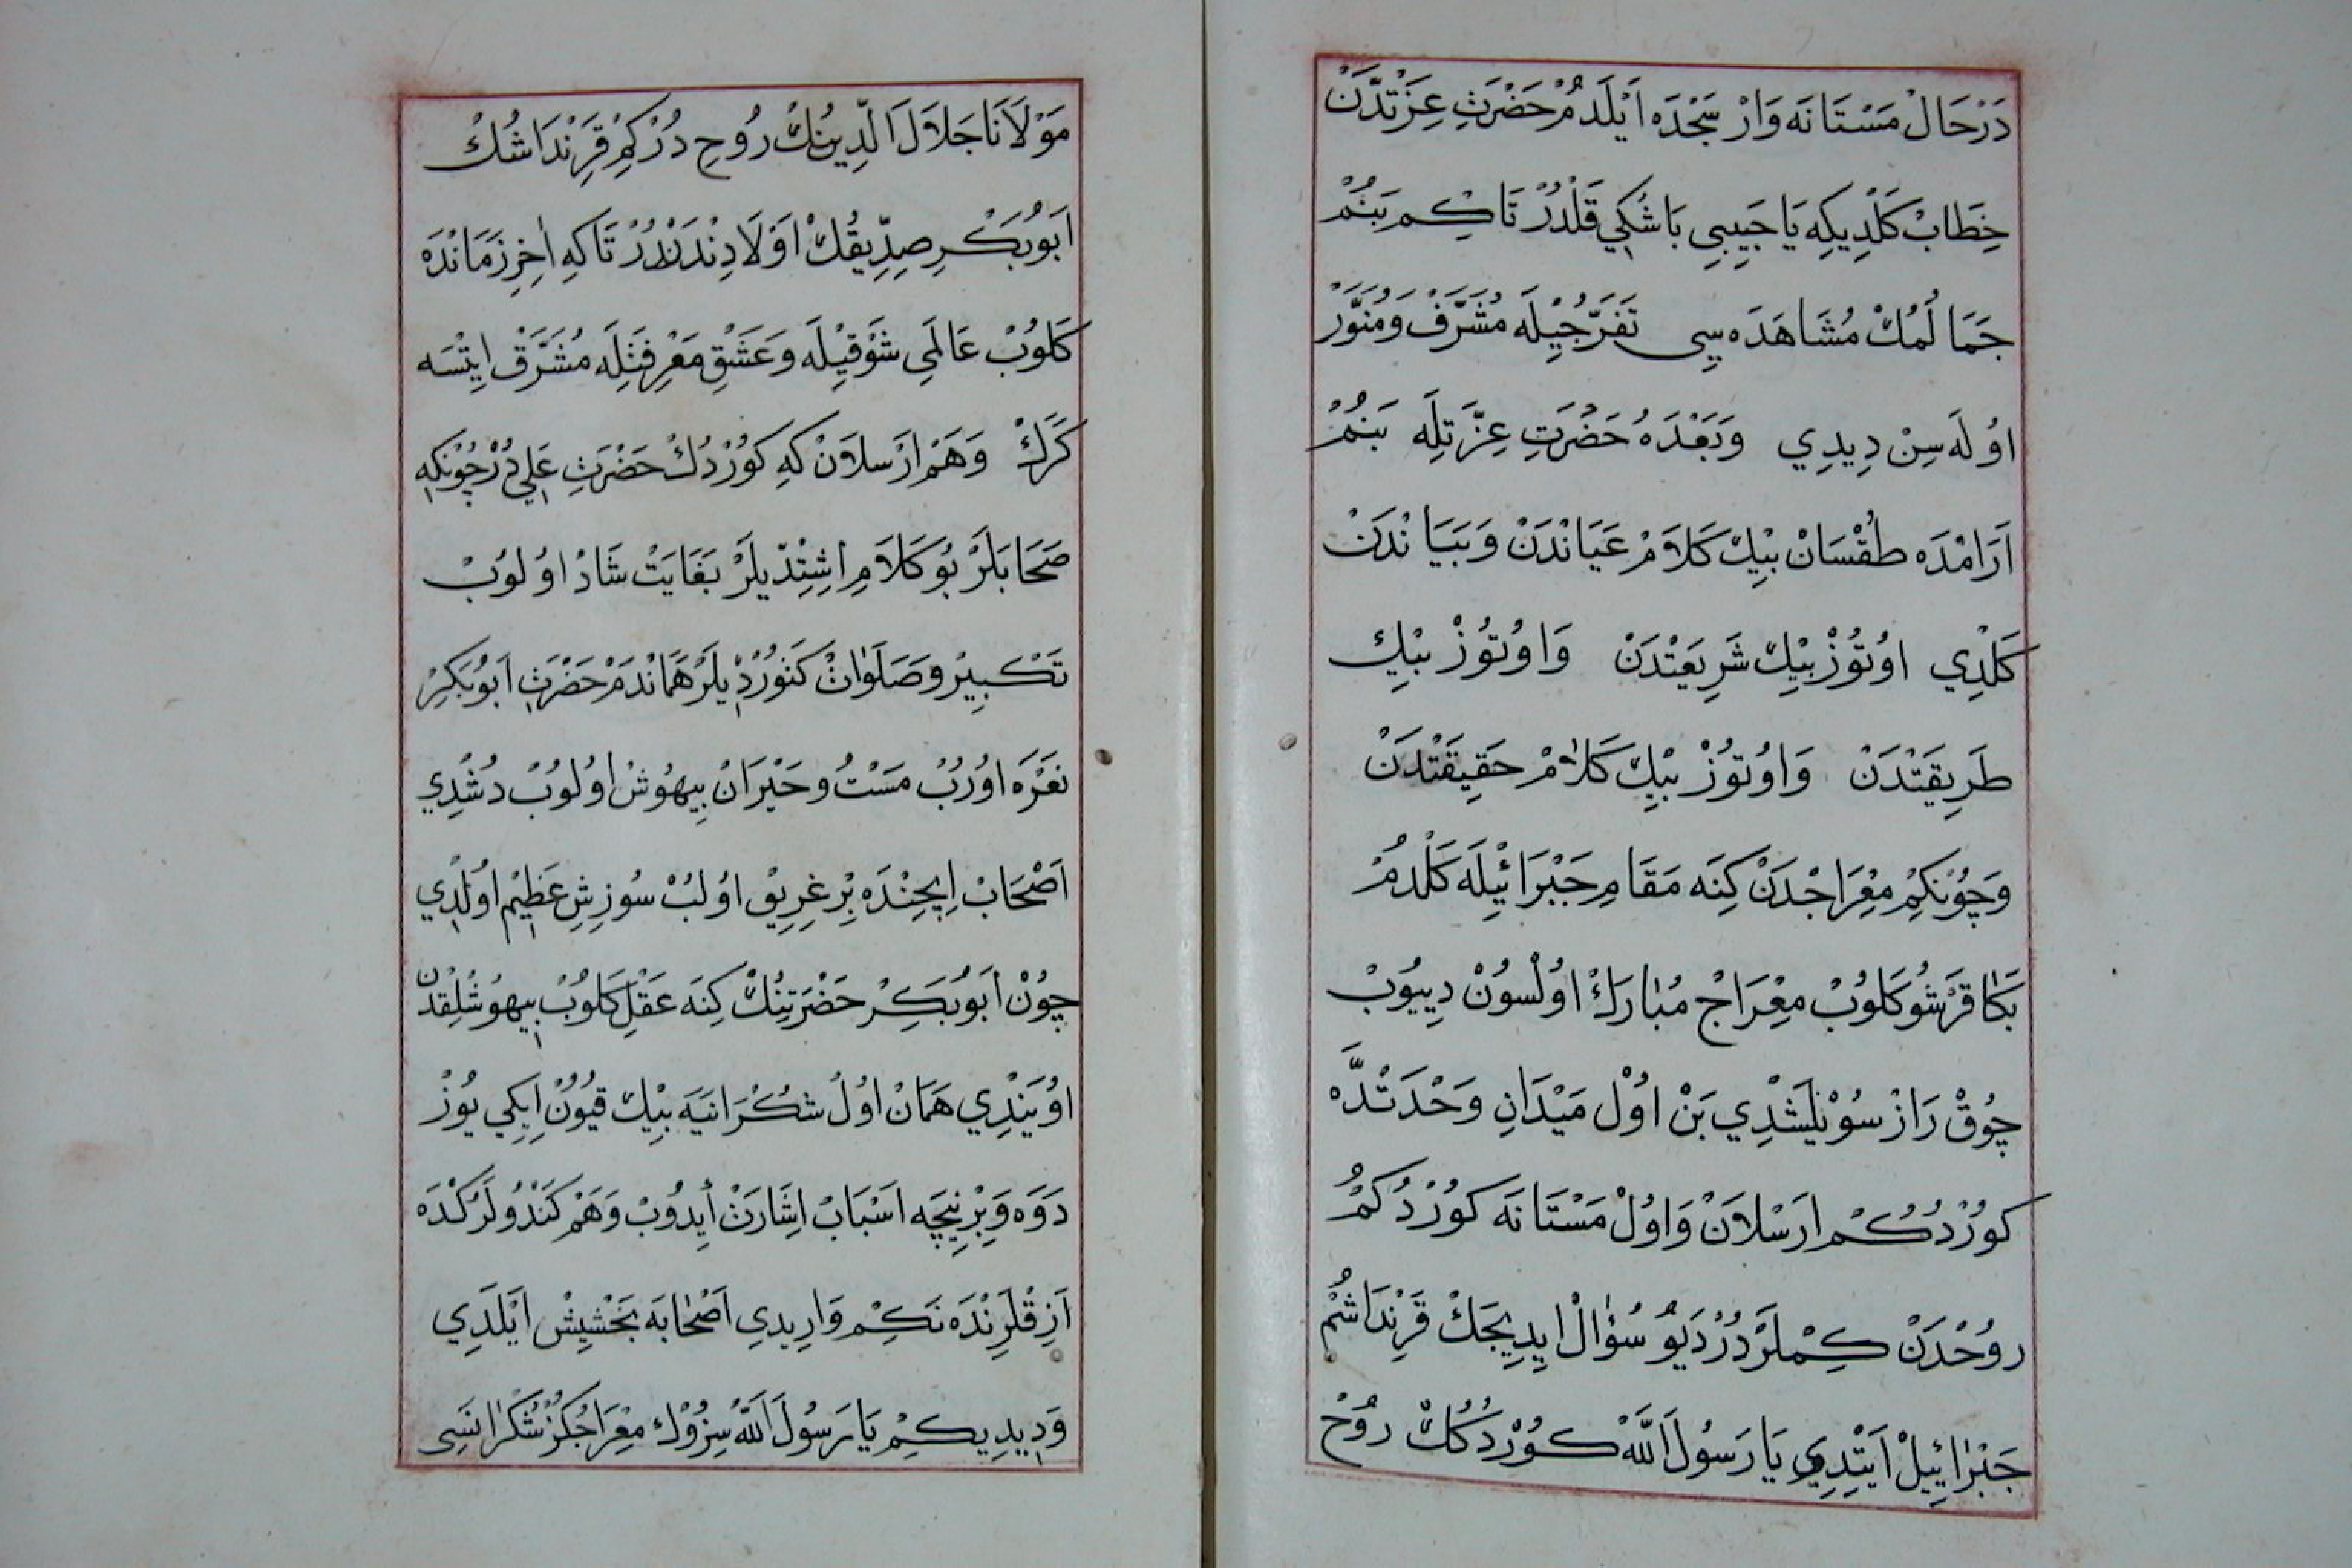 دَرْحَالْ مَسْتَانَه وَارْ سَجْدَه اَيْلَدمُ حَضْرَتِ عِزَّتدَنْ
خِطَابْ كَلْدِيكِه يَا حَبِيبِي بَاشُكِي قَلْدُرْ تَاكِم بَنُمْ
جَمَالُمُكْ مُشَاهَدَه سِى تَفَرُّجِيْلَه مُشَرَّفْ وَمُنَوَّرْ
اوُلَه سِنْ دِيدِي وَبَعْدَهُ حَضْرَتِ عِزَّتِلَه بَنُمْ
اَرَامْدَه طُقْسَانْ بِيْكْ كَلَامْ عَيَانْدَنْ وَبَيَانْدَنْ
كَلْدِي اوُتُوزْ بِيْكْ شَرِيعَتْدَنْ وَاوُتُوزْ بِيْكْ
طَرِيقَتْدَنْ وَاوُتُوزْ بِيْكْ كَلَامْ حَقِيقَتْدَنْ
وَچُونْكِمْ مِعْرَاجْدَنْ كِنَه مَقَامِ جَبْرَائِيلَه كَلْدُمْ
بَكَا قَرْشُو كَلُوبْ مِعْرَاجْ مُبَارَكْ اوُلْسُونْ دِييُوبْ
چُوقْ رَازْ سُوْيْلَشْدِي بَنْ اوُلْ مَيْدَانِ وَحْدَتْدَه
كُورْدُكُم ارَسْلَانْ وَاوُلْ مَسْتَانَه كُورْدُكُمْ
رُوحْدَنْ كِمْلَرْدُرْ دَيُو سُؤَالْ ايدِيجَكْ قَرِنْدَاشُمْ
جَبْرَائِيلْ اَيْتِدِي يَا رَسُولَ اللَّه كُورْدُكُكْ رُوحْ
مَوْلَانَا جَلَالَ الدِّينُكْ رُوحِ دُرْكِمْ قَرِنْدَاشُكْ
اَبُو بَكْرِ صِدِّيقُكْ اَوْلَادِنْدَنْدُرْ تَاكِه اٰخِرِ زَمَانْدَه
كَلُوبْ عَالَمِي شَوْقِيْلَه وَعَشْقِ مَعْرِفَتِلَه مُشَرَّقْ ايتْسَه
كَرَكْ وَهَمْ ارْسلَانْ كِه كُورْدُكْ حَضْرَتِ عَلِي دُرْ چُونْكِه
صَحَابَلَرْ بُو كَلَامِ اِشِتْدِيلَرْ بَغَايَتْ شَادْ اوُلُوبْ
تَكْبِيرْ وَصَلَوَاتْ كَتُورْدِيلَرْ هَمَانْدَمْ حَضْرَتِ اَبُو بَكِرْ
نَعْرَه اوُرُبْ مَسْتُ وَحَيْرَانْ بِيهُوشْ اوُلُوبْ دُشْدِي
اَصْحَابْ اِيچِنْدَه بِرْ غِرِيوْ اوُلُبْ سُوزِشِ عَظِيْم اوُلْدِي
چُونْ اَبُو بَكِرْ حَضْرَتِنُكْ كِنَه عَقْلِ كَلُوبْ بِيهُوشْلِقْدَنْ
اوُيَنْدِي هَمَانْ اوُلْ شُكْرَانِيَه بِيْكْ قُيُونْ اِيكِي يُوزْ
دَوَه وَبِرْنِيچَه اَسْبَابْ اِشَارَتْ اَيدُوبْ وَهَمْ كَنْدُولَرُكْدَه
اَزِقْلَرِنْدَه نَكِمْ وَارِيدِي اَصْحَابَه بَخْشِيشْ اَيْلَدِي
وَدِيدِيكِمْ يَا رَسُولَ اللَّه سِزُوكْ مِعْرَاجُكُزْ شُكْرَانَسِى